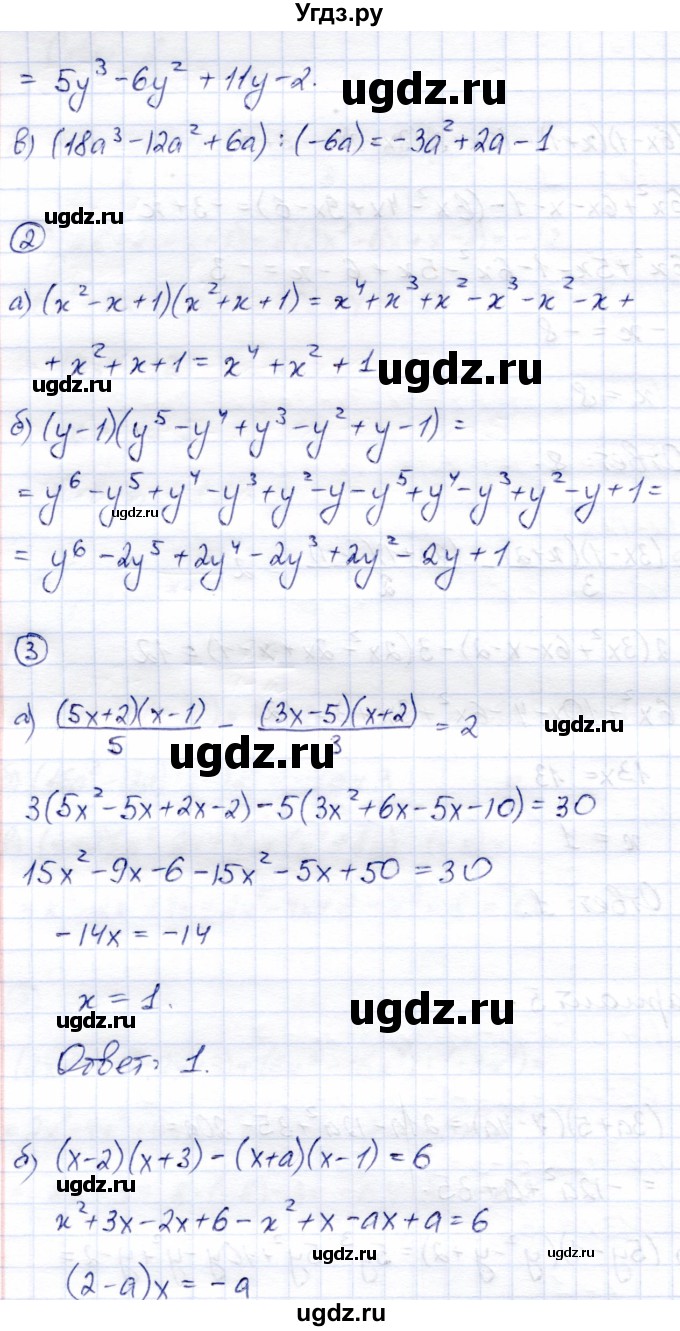 Угдз.ру
= 5y³ - 6y² + 11y - 2.
ugdz.ru
в) (18a³ - 12a² + 6a) : (-6a) = -3a² + 2a - 1
ugdz.ru
2
а) (x² - x + 1)(x² + x + 1) = x⁴ + x³ + x² - x³ - x² - x +
+ x² + x + 1 = x⁴ + x² + 1
ugdz.ru
ugdz.ru
б) (y - 1)(y⁵ - y⁴ + y³ - y² + y - 1) =
= y⁶ - y⁵ + y⁴ - y³ + y² - y - y⁵ + y⁴ - y³ + y² - y + 1 =
ugdz.ru
= y⁶ - 2y⁵ + 2y⁴ - 2y³ + 2y² - 2y + 1
3
а) (5x+2)(x-1)/5 - (3x-5)(x+2)/3 = 2
ugdz.ru
ugdz.ru
3(5x² - 5x + 2x - 2) - 5(3x² + 6x - 5x - 10) = 30
15x² - 9x - 6 - 15x² - 5x + 50 = 30
-14x = -14
x = 1.
ugdz.ru
ugdz.ru
Ответ: 1.
б) (x-2)(x+3) - (x+a)(x-1) = 6
ugdz.ru
x² + 3x - 2x + 6 - x² + x - ax + a = 6
ugdz.ru
ugdz.ru
(2-a)x = -a
ugdz.ru